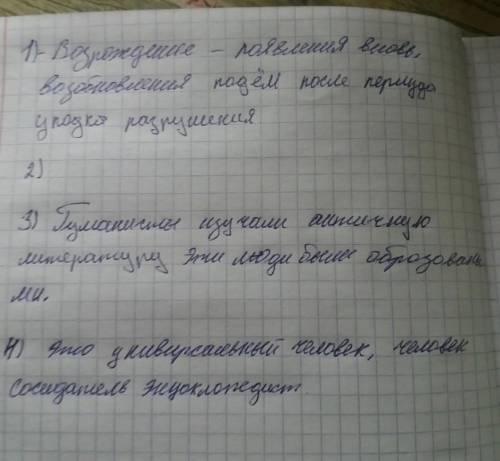 1)- Возрождение – появления вновь,
возобновления подъём после периуда
упадка разрушения
2)
3) Гуманисты изучали античную
литературу эти люди были образованы
ми.
4) это универсальный человек, человек
сосидатель энцоклопедист.